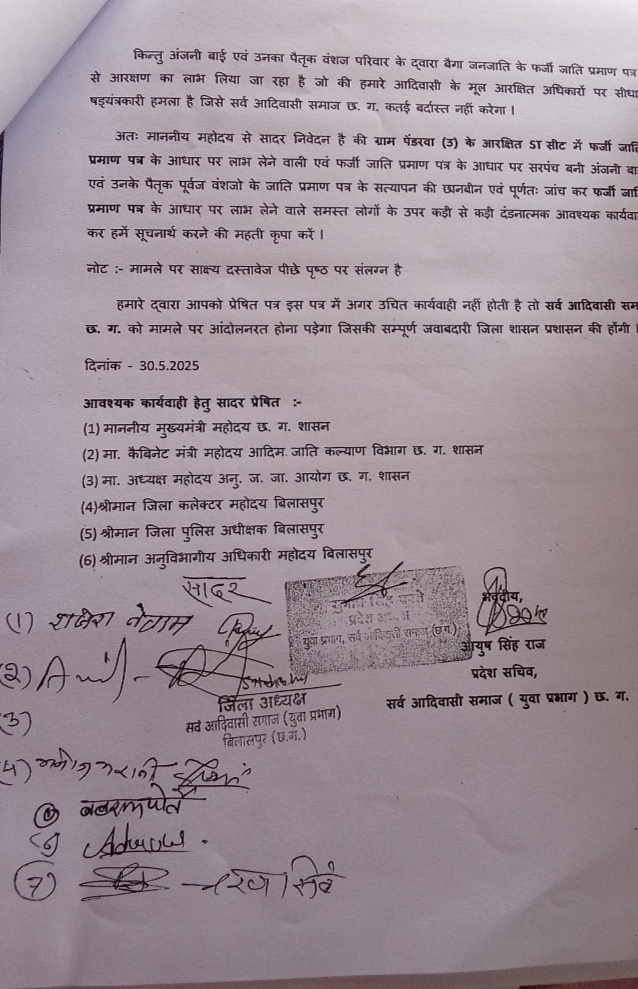 किन्तु अंजनी बाई एवं उनका पैतृक वंशज परिवार के द्वारा बैगा जनजाति के फर्जी जाति प्रमाण पत्र
से आरक्षण का लाभ लिया जा रहा है जो की हमारे आदिवासी के मूल आरक्षित अधिकारों पर सीधा
षड्यंत्रकारी हमला है जिसे सर्व आदिवासी समाज छ. ग. कतई बर्दास्त नहीं करेगा ।
अतः माननीय महोदय से सादर निवेदन है की ग्राम पेंडरवा (उ) के आरक्षित ST सीट में फर्जी
प्रमाण पत्र के आधार पर लाभ लेने वाली एवं फर्जी जाति प्रमाण पत्र के आधार पर सरपंच बनी अंजनी
एवं उनके पैतृक पूर्वज वंशजो के जाति प्रमाण पत्र के सत्यापन की छानबीन एवं पूर्णतः जांच कर फर्जी
प्रमाण पत्र के आधार पर लाभ लेने वाले समस्त लोगों के उपर कड़ी से कड़ी दंडनात्मक आवश्यक
कर हमें सूचनार्थ करने की महती कृपा करें ।
नोट :- मामले पर साक्ष्य दस्तावेज पीछे पृष्ठ पर संलग्न है
हमारे द्वारा आपको प्रेषित पत्र इस पत्र में अगर उचित कार्यवाही नहीं होती है तो सर्व आदिवासी
छ. ग. को मामले पर आंदोलनरत होना पड़ेगा जिसकी सम्पूर्ण जवाबदारी जिला शासन प्रशासन की होंगी ।
दिनांक - 30.5.2025
आवश्यक कार्यवाही हेतु सादर प्रेषित :-
(1) माननीय मुख्यमंत्री महोदय छ. ग. शासन
(2) मा. कैबिनेट मंत्री महोदय आदिम जाति कल्याण विभाग छ. ग. शासन
(3) मा. अध्यक्ष महोदय अनु. ज. जा. आयोग छ. ग. शासन
(4)श्रीमान जिला कलेक्टर महोदय बिलासपुर
(5) श्रीमान जिला पुलिस अधीक्षक बिलासपुर
(6) श्रीमान अनुविभागीय अधिकारी महोदय बिलासपुर
सादर
भवदीय,
प्रदेश अध्यक्ष
युवा प्रभाग, सर्व आदिवासी समाज (छ.ग.)
आयुष सिंह राज
प्रदेश सचिव,
सर्व आदिवासी समाज ( युवा प्रभाग ) छ. ग.
(1)
(2)
जिला अध्यक्ष
सर्व आदिवासी समाज (युवा प्रभाग)
बिलासपुर (छ.ग.)
(3)
(4)
(7)